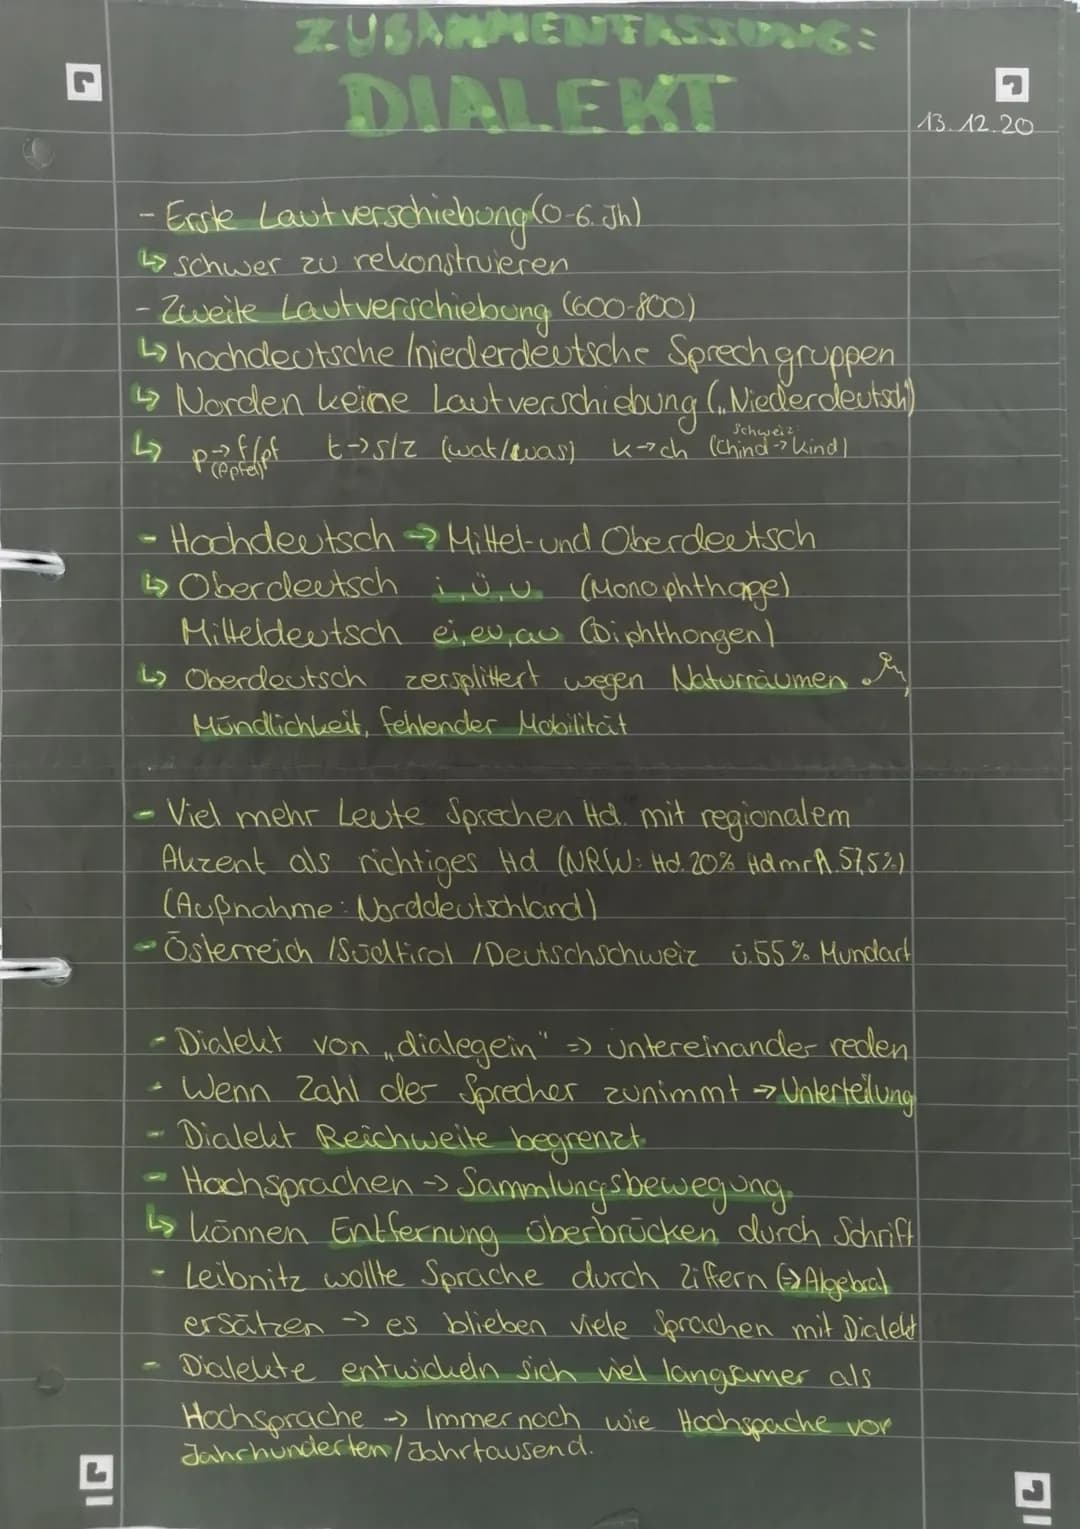 ZUSAMMENFASSUNG:
DIALEKT
13.12.20
- Erste Lautverschiebung (0-6. Jh)
↳ schwer zu rekonstruieren
- Zweite Lautverschiebung (600-800)
↳ hochdeutsche /niederdeutsche Sprechgruppen
↳ Norden keine Lautverschiebung („Niederdeutsch")
↳ p→f/pf t→s/z (wat/was) k→ch (Chind→Kind)
Schweiz:
- Hochdeutsch → Mittel- und Oberdeutsch
↳ Oberdeutsch i, ü, u (Monophthage)
Mitteldeutsch ei, eu, au (Diphthongen)
↳ Oberdeutsch zersplittert wegen Naturräumen
Mündlichkeit, fehlender Mobilität
- Viel mehr Leute Sprechen Hd. mit regionalem
Akzent als richtiges Hd (NRW: Hd. 20% HdmrA. 57,5%)
(Außnahme: Norddeutschland)
- Österreich /Südtirol /Deutschschweiz ü. 55% Mundart
- Dialekt von „dialegein" => untereinander reden
- Wenn Zahl der Sprecher zunimmt → Unterteilung
- Dialekt Reichweite begrenzt
- Hochsprachen → Sammlungsbewegung
↳ können Entfernung überbrücken durch Schrift
- Leibnitz wollte Sprache durch Ziffern (=> Algebra)
ersätzen → es blieben viele Sprachen mit Dialekt
- Dialekte entwickeln sich viel langsamer als
Hochsprache → Immer noch wie Hochspache vor
Jahrhunderten/Jahrtausend.